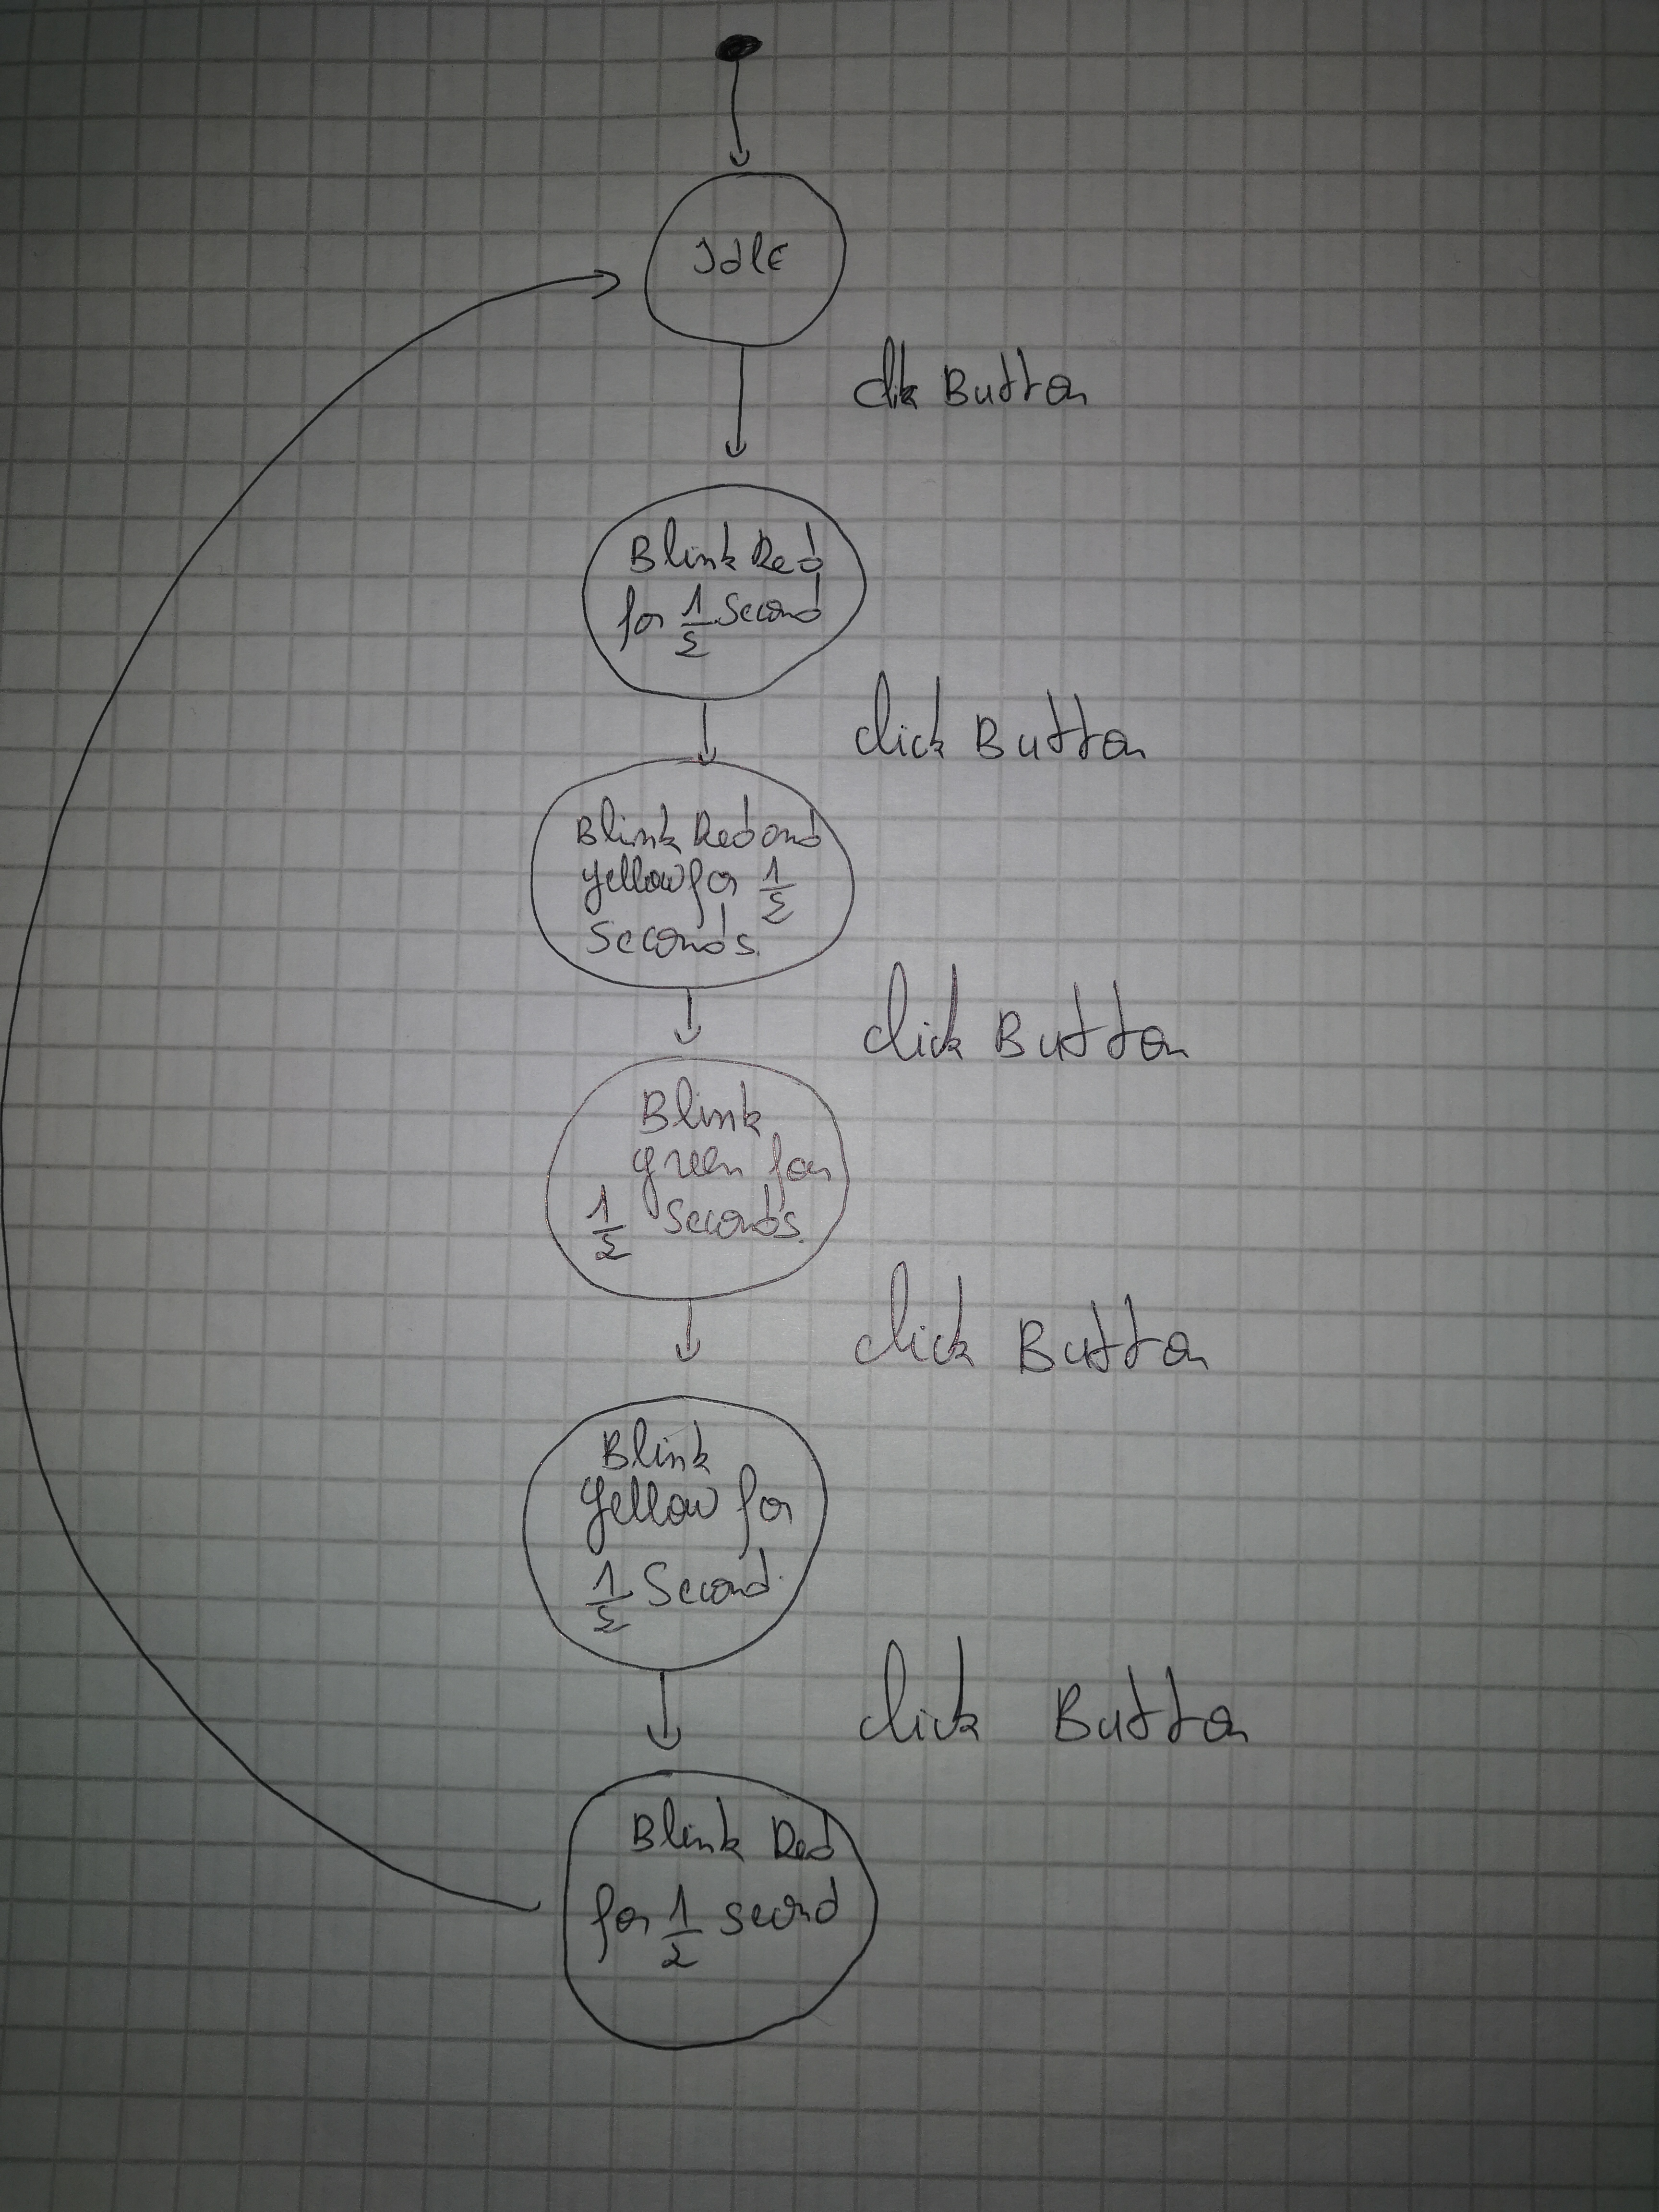 Idle
clik Button
Blink Red
for 1/2 Second
click Button
Blink Red and
yellow for 1/2
Seconds.
click Button
Blink
green for
1/2 Seconds.
click Button
Blink
Yellow for
1/2 Second.
click Button
Blink Red
for 1/2 second